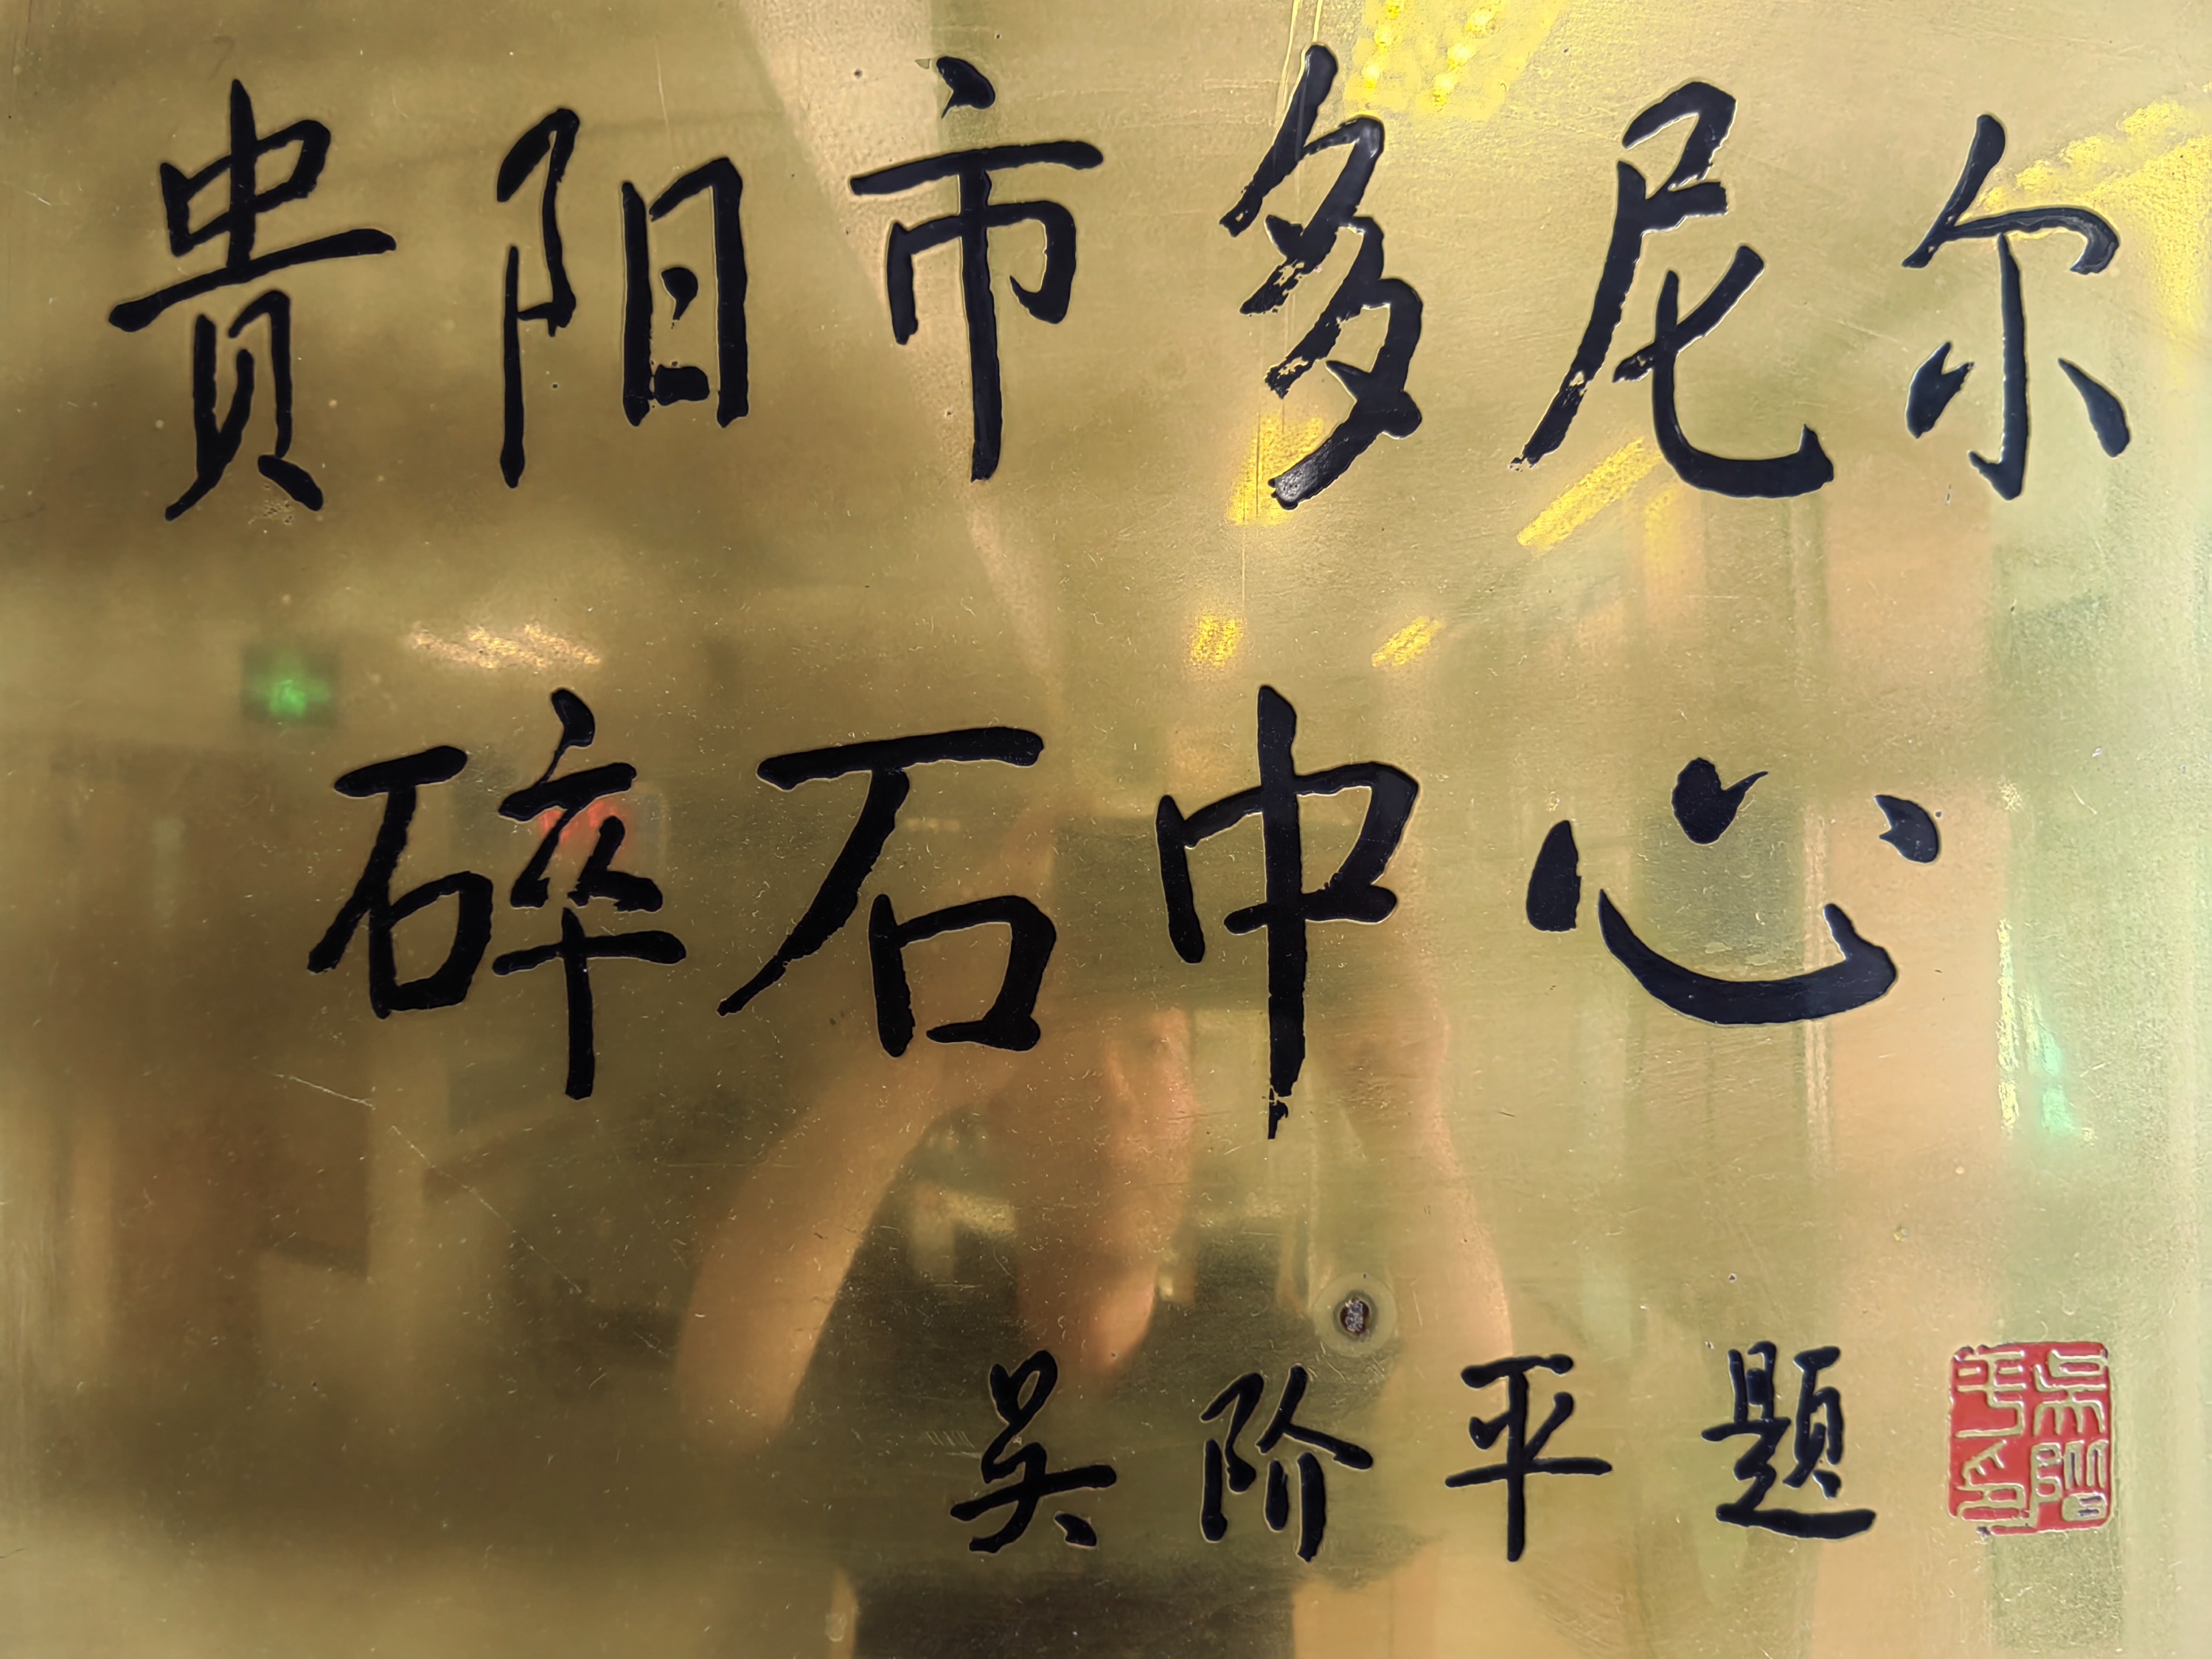 贵阳市多尼尔
碎石中心
吴阶平题